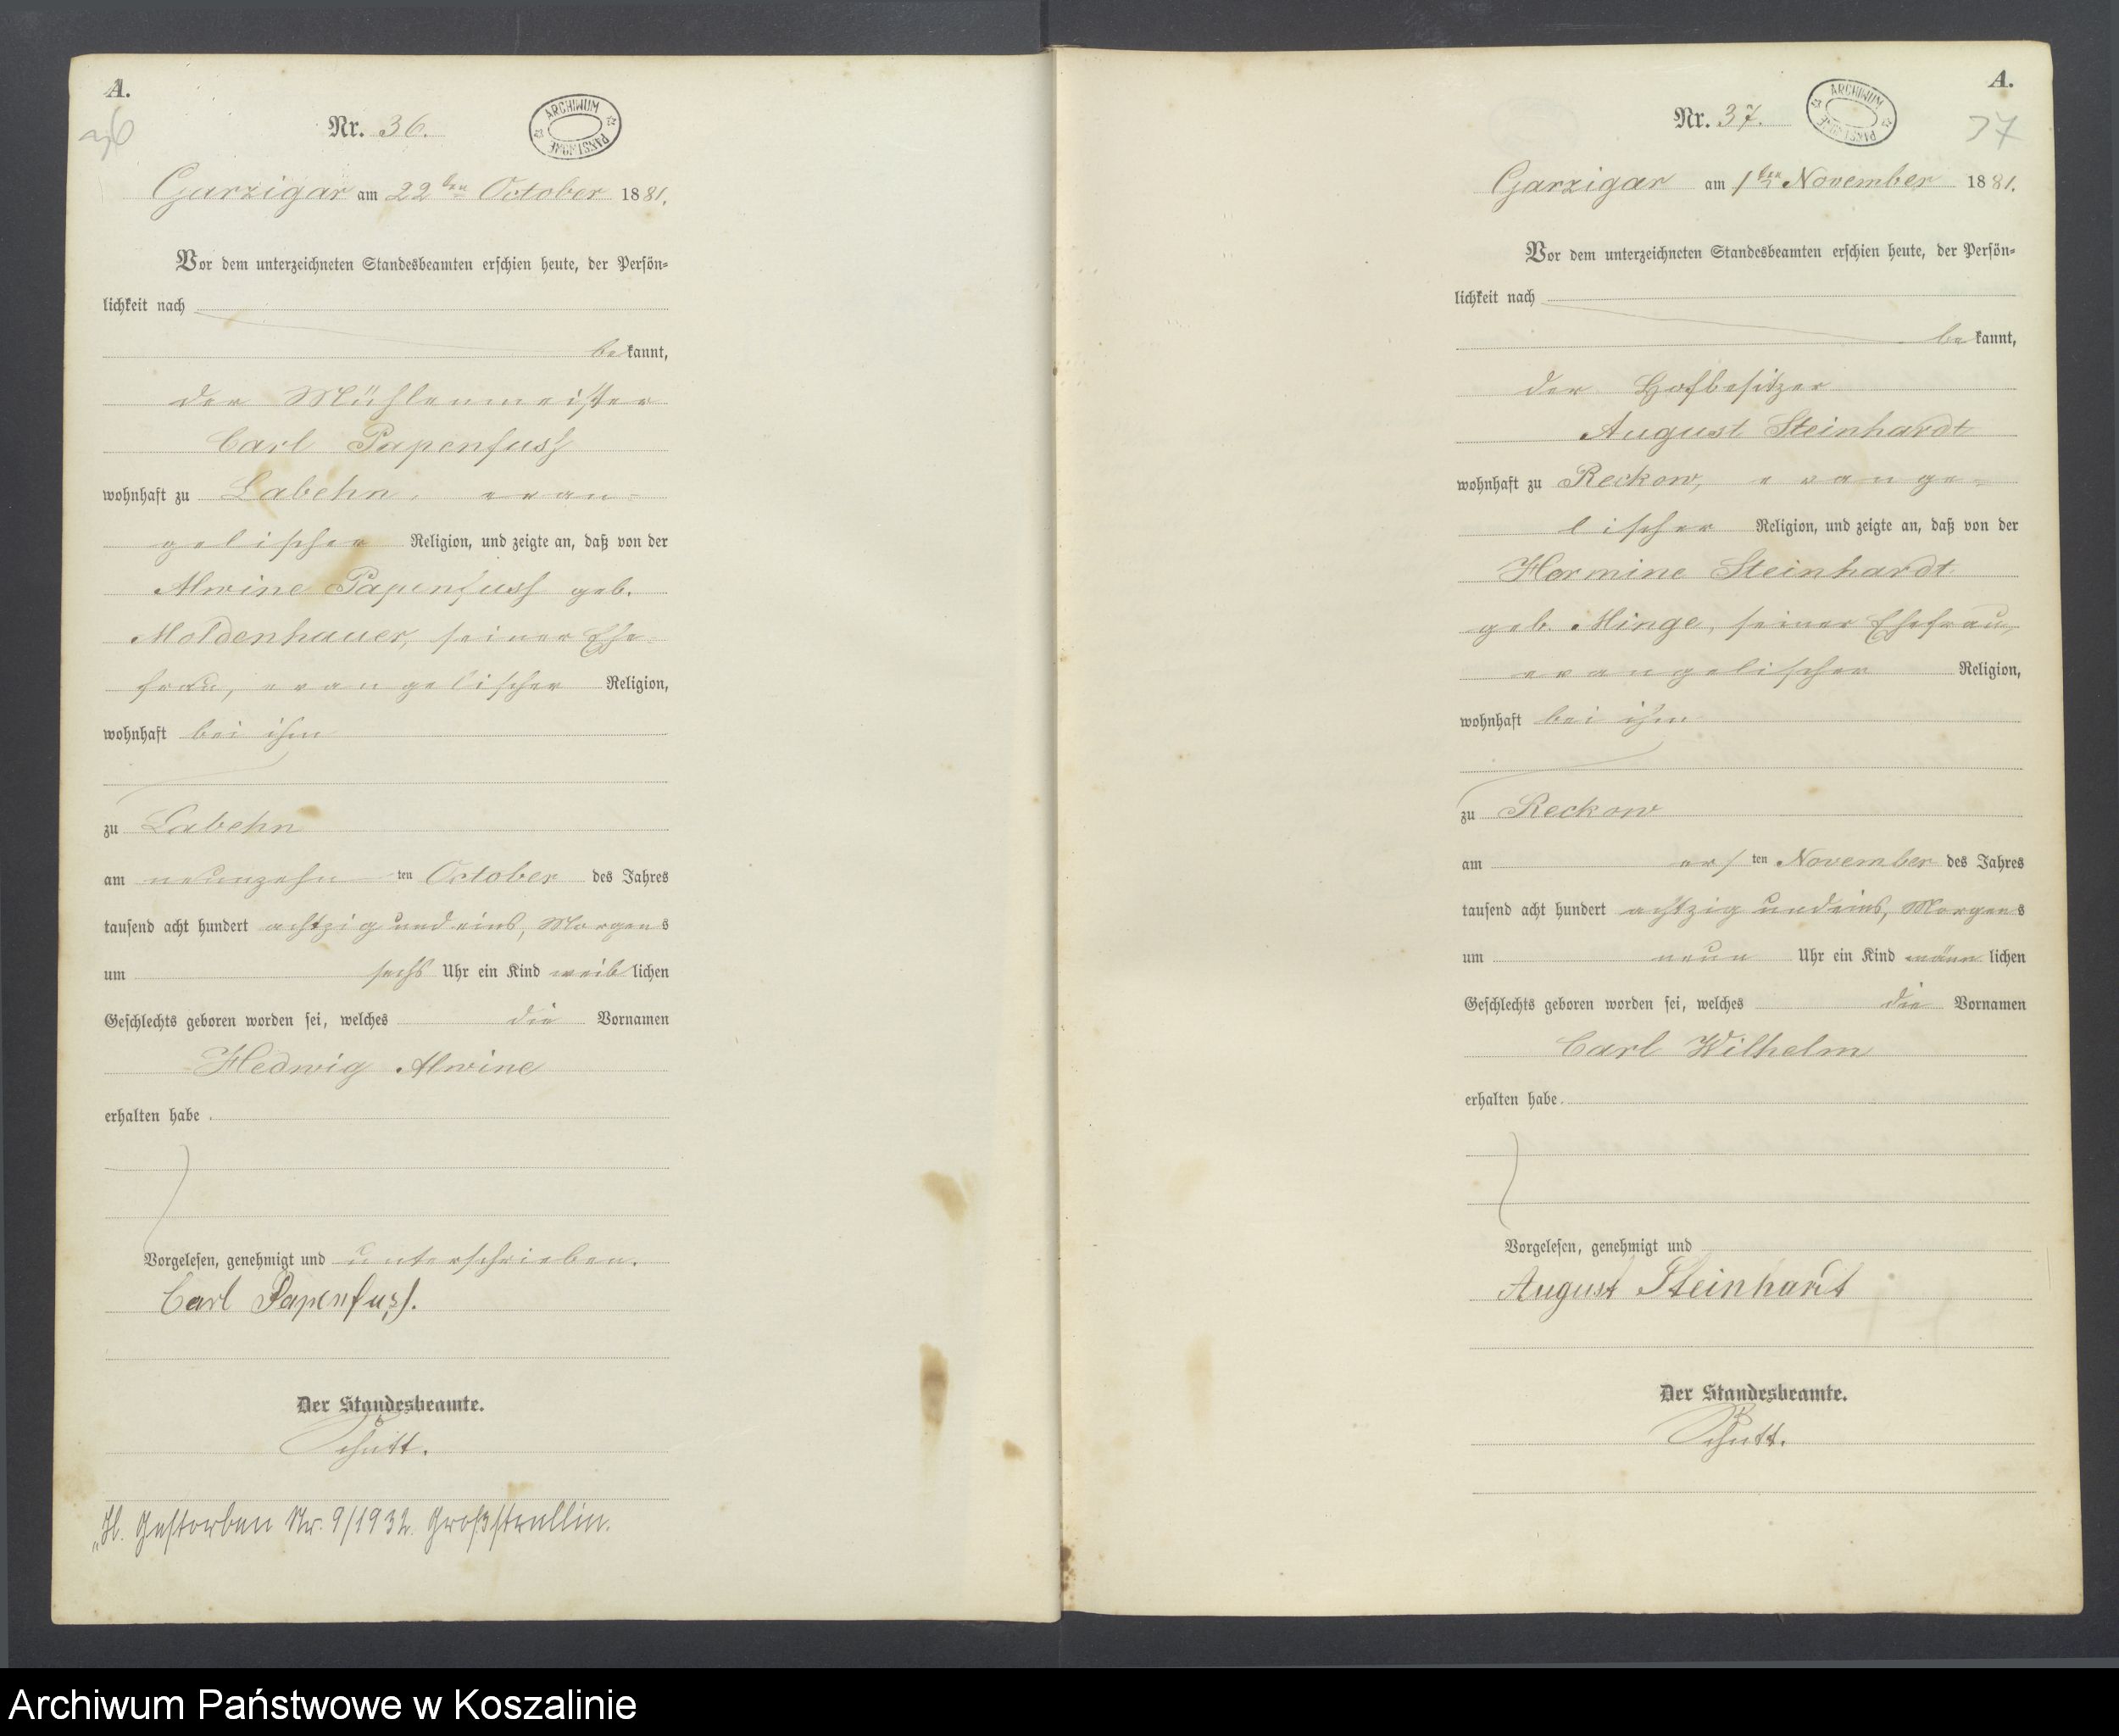 A.
36
Nr. 36.
ARCHIWUM PAŃSTWOWE
Garzigar am 22ten October 1881.
Vor dem unterzeichneten Standesbeamten erschien heute, der Persön=
lichkeit nach
bekannt,
der Mühlenmeister
Carl Papenfuss
wohnhaft zu Labehn, evan=
gelischer Religion, und zeigte an, daß von der
Alwine Papenfuss geb.
Moldenhauer, seiner Ehe=
frau, evangelischer Religion,
wohnhaft bei ihm
zu Labehn
am neunzehn ten October des Jahres
tausend acht hundert achtzig und eins, Morgens
um sechs Uhr ein Kind weiblichen
Geschlechts geboren worden sei, welches die Vornamen
Hedwig Alwine
erhalten habe.
Vorgelesen, genehmigt und unterschrieben.
Carl Papenfuss.
Der Standesbeamte.
Schütt.
Gestorben Nr. 9/1932.
A.
37
Nr. 37.
ARCHIWUM PAŃSTWOWE
Garzigar am 1ten November 1881.
Vor dem unterzeichneten Standesbeamten erschien heute, der Persön=
lichkeit nach
bekannt,
der Hofbesitzer
August Steinhardt
wohnhaft zu Reckow, evange=
lischer Religion, und zeigte an, daß von der
Hermine Steinhardt
geb. Minge, seiner Ehefrau,
evangelischer Religion,
wohnhaft bei ihm
zu Reckow
am ersten November des Jahres
tausend acht hundert achtzig und eins, Morgens
um neun Uhr ein Kind männlichen
Geschlechts geboren worden sei, welches die Vornamen
Carl Wilhelm
erhalten habe.
Vorgelesen, genehmigt und
August Steinhardt
Der Standesbeamte.
Schütt.
Archiwum Państwowe w Koszalinie